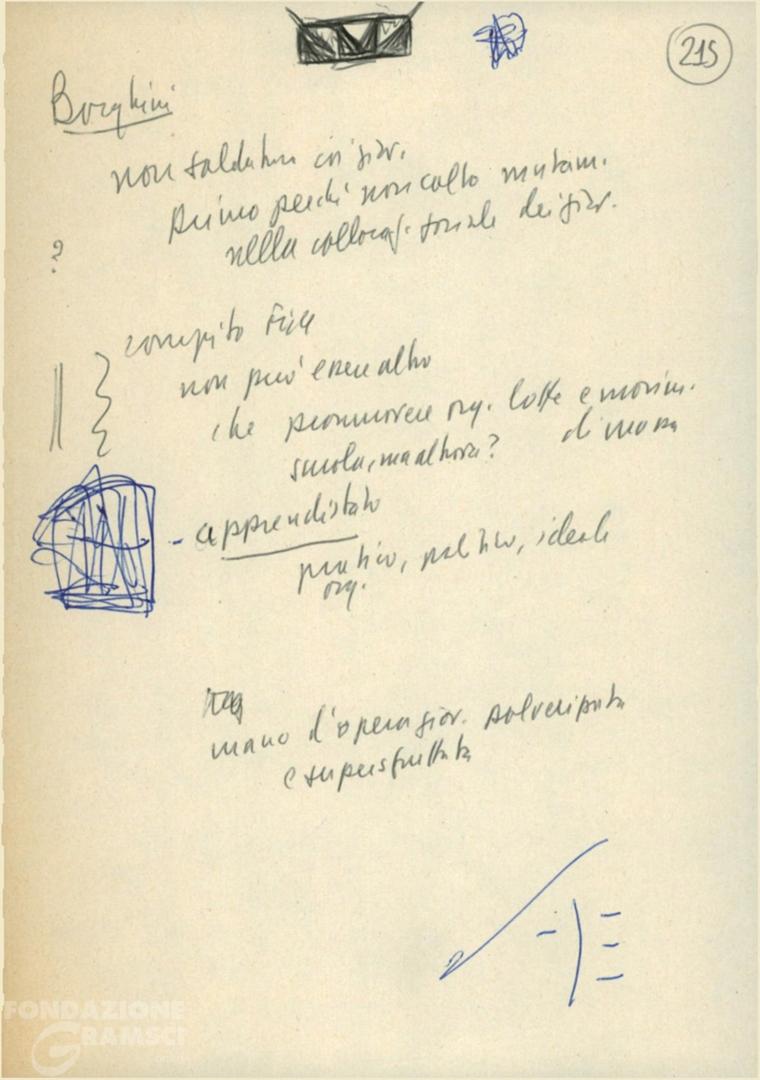 215
Borghini
non saldatura coi giov.
primo perché non colto mutam.
nella collocaz. sociale dei giov.
?
compito FGCI
non può essere altro
che promuovere org. lotte e movim.
di massa
scuola, ma allora?
- apprendistato
pratico, politico, ideale
org.
mano d'opera giov. polverizzata
e supersfruttata
FONDAZIONE
GRAMSCI